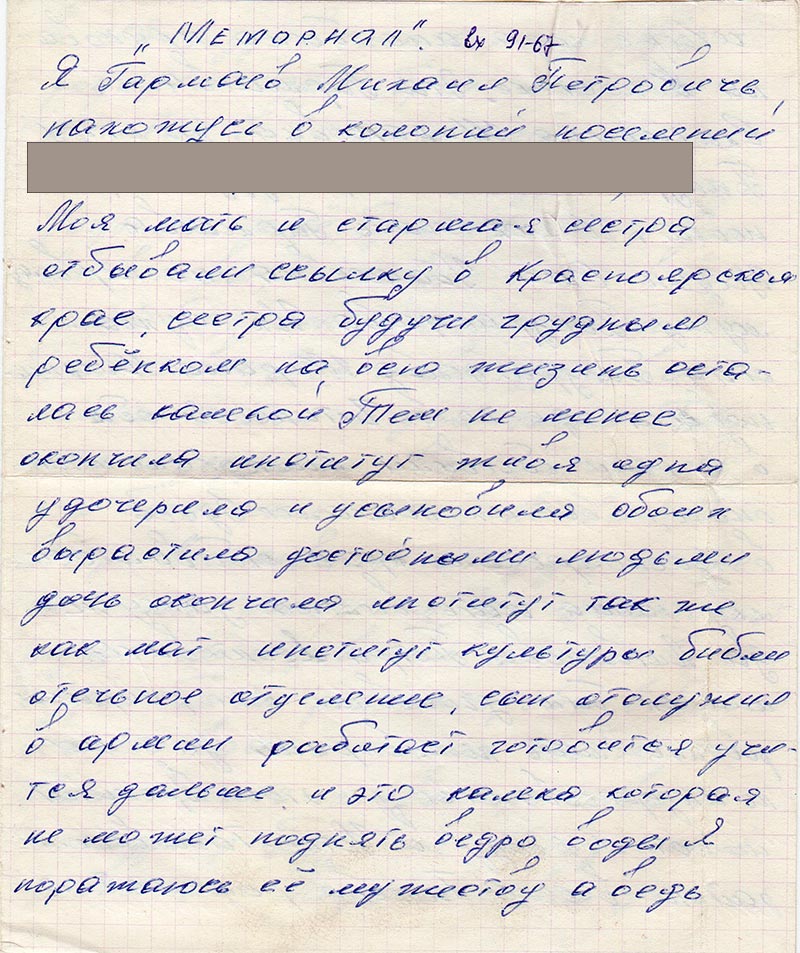 „Мемориал". вх 91-67
Я Гармаев Михаил Петрович,
нахожусь в колонии поселений
Моя мать и старшая сестра
отбывали ссылку в Красноярском
крае, сестра будучи грудным
ребёнком на всю жизнь оста-
лась калекой, Тем не менее
окончила институт живя одна
удочерила и усыновила обоих
вырастила достойными людьми
дочь окончила институт так же
как мат институт культуры библи
отечьное отделение, сын отслужил
в армии работает готовится учи-
тся дальше и это калека которая
не может поднять ведро воды Я
поражаюсь её мужеству а ведь